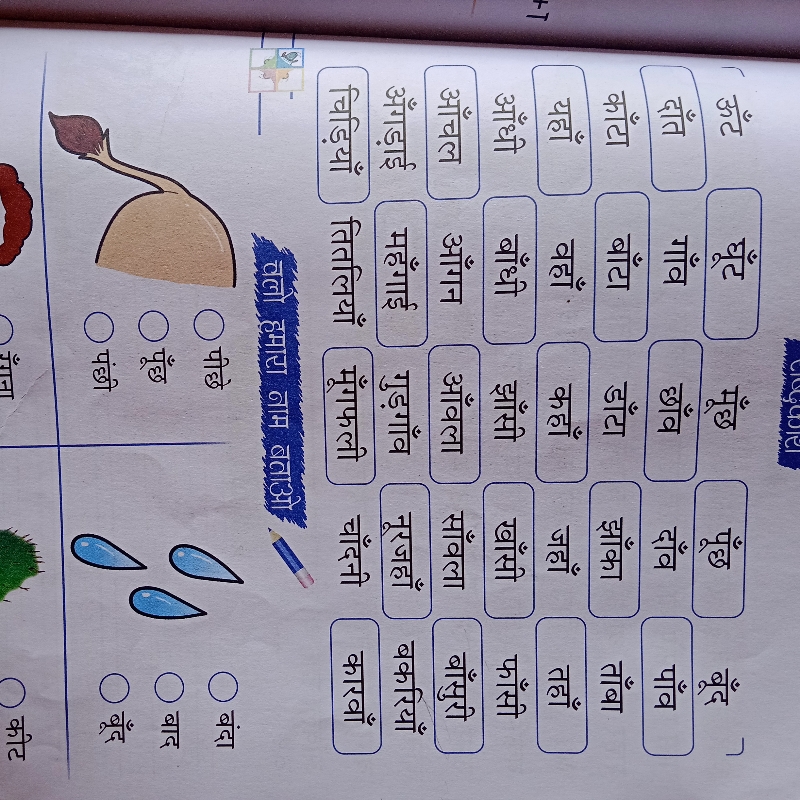 ऊँट घूँट मूँछ पूँछ बूँद
दाँत गाँव छाँव दाँव पाँव
काँटा बाँटा डाँटा झाँका ताँबा
यहाँ वहाँ कहाँ जहाँ तहाँ
आँधी बाँधी झाँसी खाँसी फाँसी
आँचल आँगन आँवला साँवला बाँसुरी
अँगड़ाई महँगाई गुड़गाँव नूरजहाँ बकरियाँ
चिड़ियाँ तितलियाँ मूँगफली चाँदनी कारवाँ
चलो हमारा नाम बताओ
पीछे
पूँछ
पंछी
बंदा
बाद
बूँद